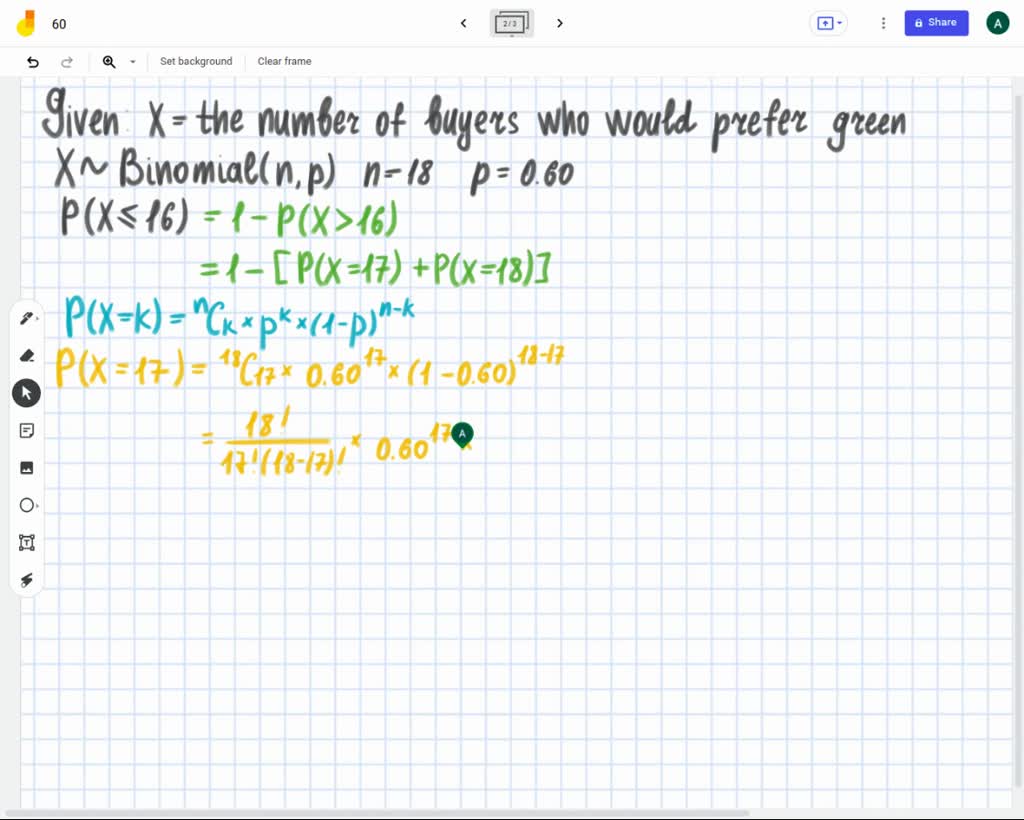 60
2/3
Share
A
Set background
Clear frame
Given: X = the number of buyers who would prefer green
X ~ Binomial(n, p) n = 18 p = 0.60
P(X ≤ 16) = 1 - P(X > 16)
= 1 - [P(X = 17) + P(X = 18)]
P(X = k) = ⁿCₖ × pᵏ × (1-p)ⁿ⁻ᵏ
P(X = 17) = ¹⁸C₁₇ × 0.60¹⁷ × (1 - 0.60)¹⁸⁻¹⁷
= 18! / 17!(18-17)! × 0.60¹⁷
A
T